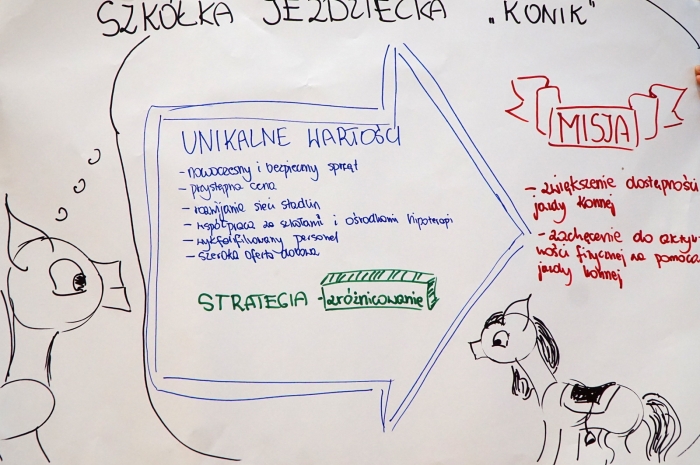 SZKÓŁKA JEŹDZIECKA „KONIK"
UNIKALNE WARTOŚCI
- nowoczesny i bezpieczny sprzęt
- przystępna cena
- rozwijanie sieci stadnin
- współpraca ze szkołami i ośrodkami hipoterapi
- wykfalifikowany personel
- szeroka oferta
STRATEGIA - zróżnicowanie
MISJA
- zwiększenie dostępności
jazdy konnej
- zachęcenie do aktyw-
ności fizycznej za pomocą
jazdy konnej